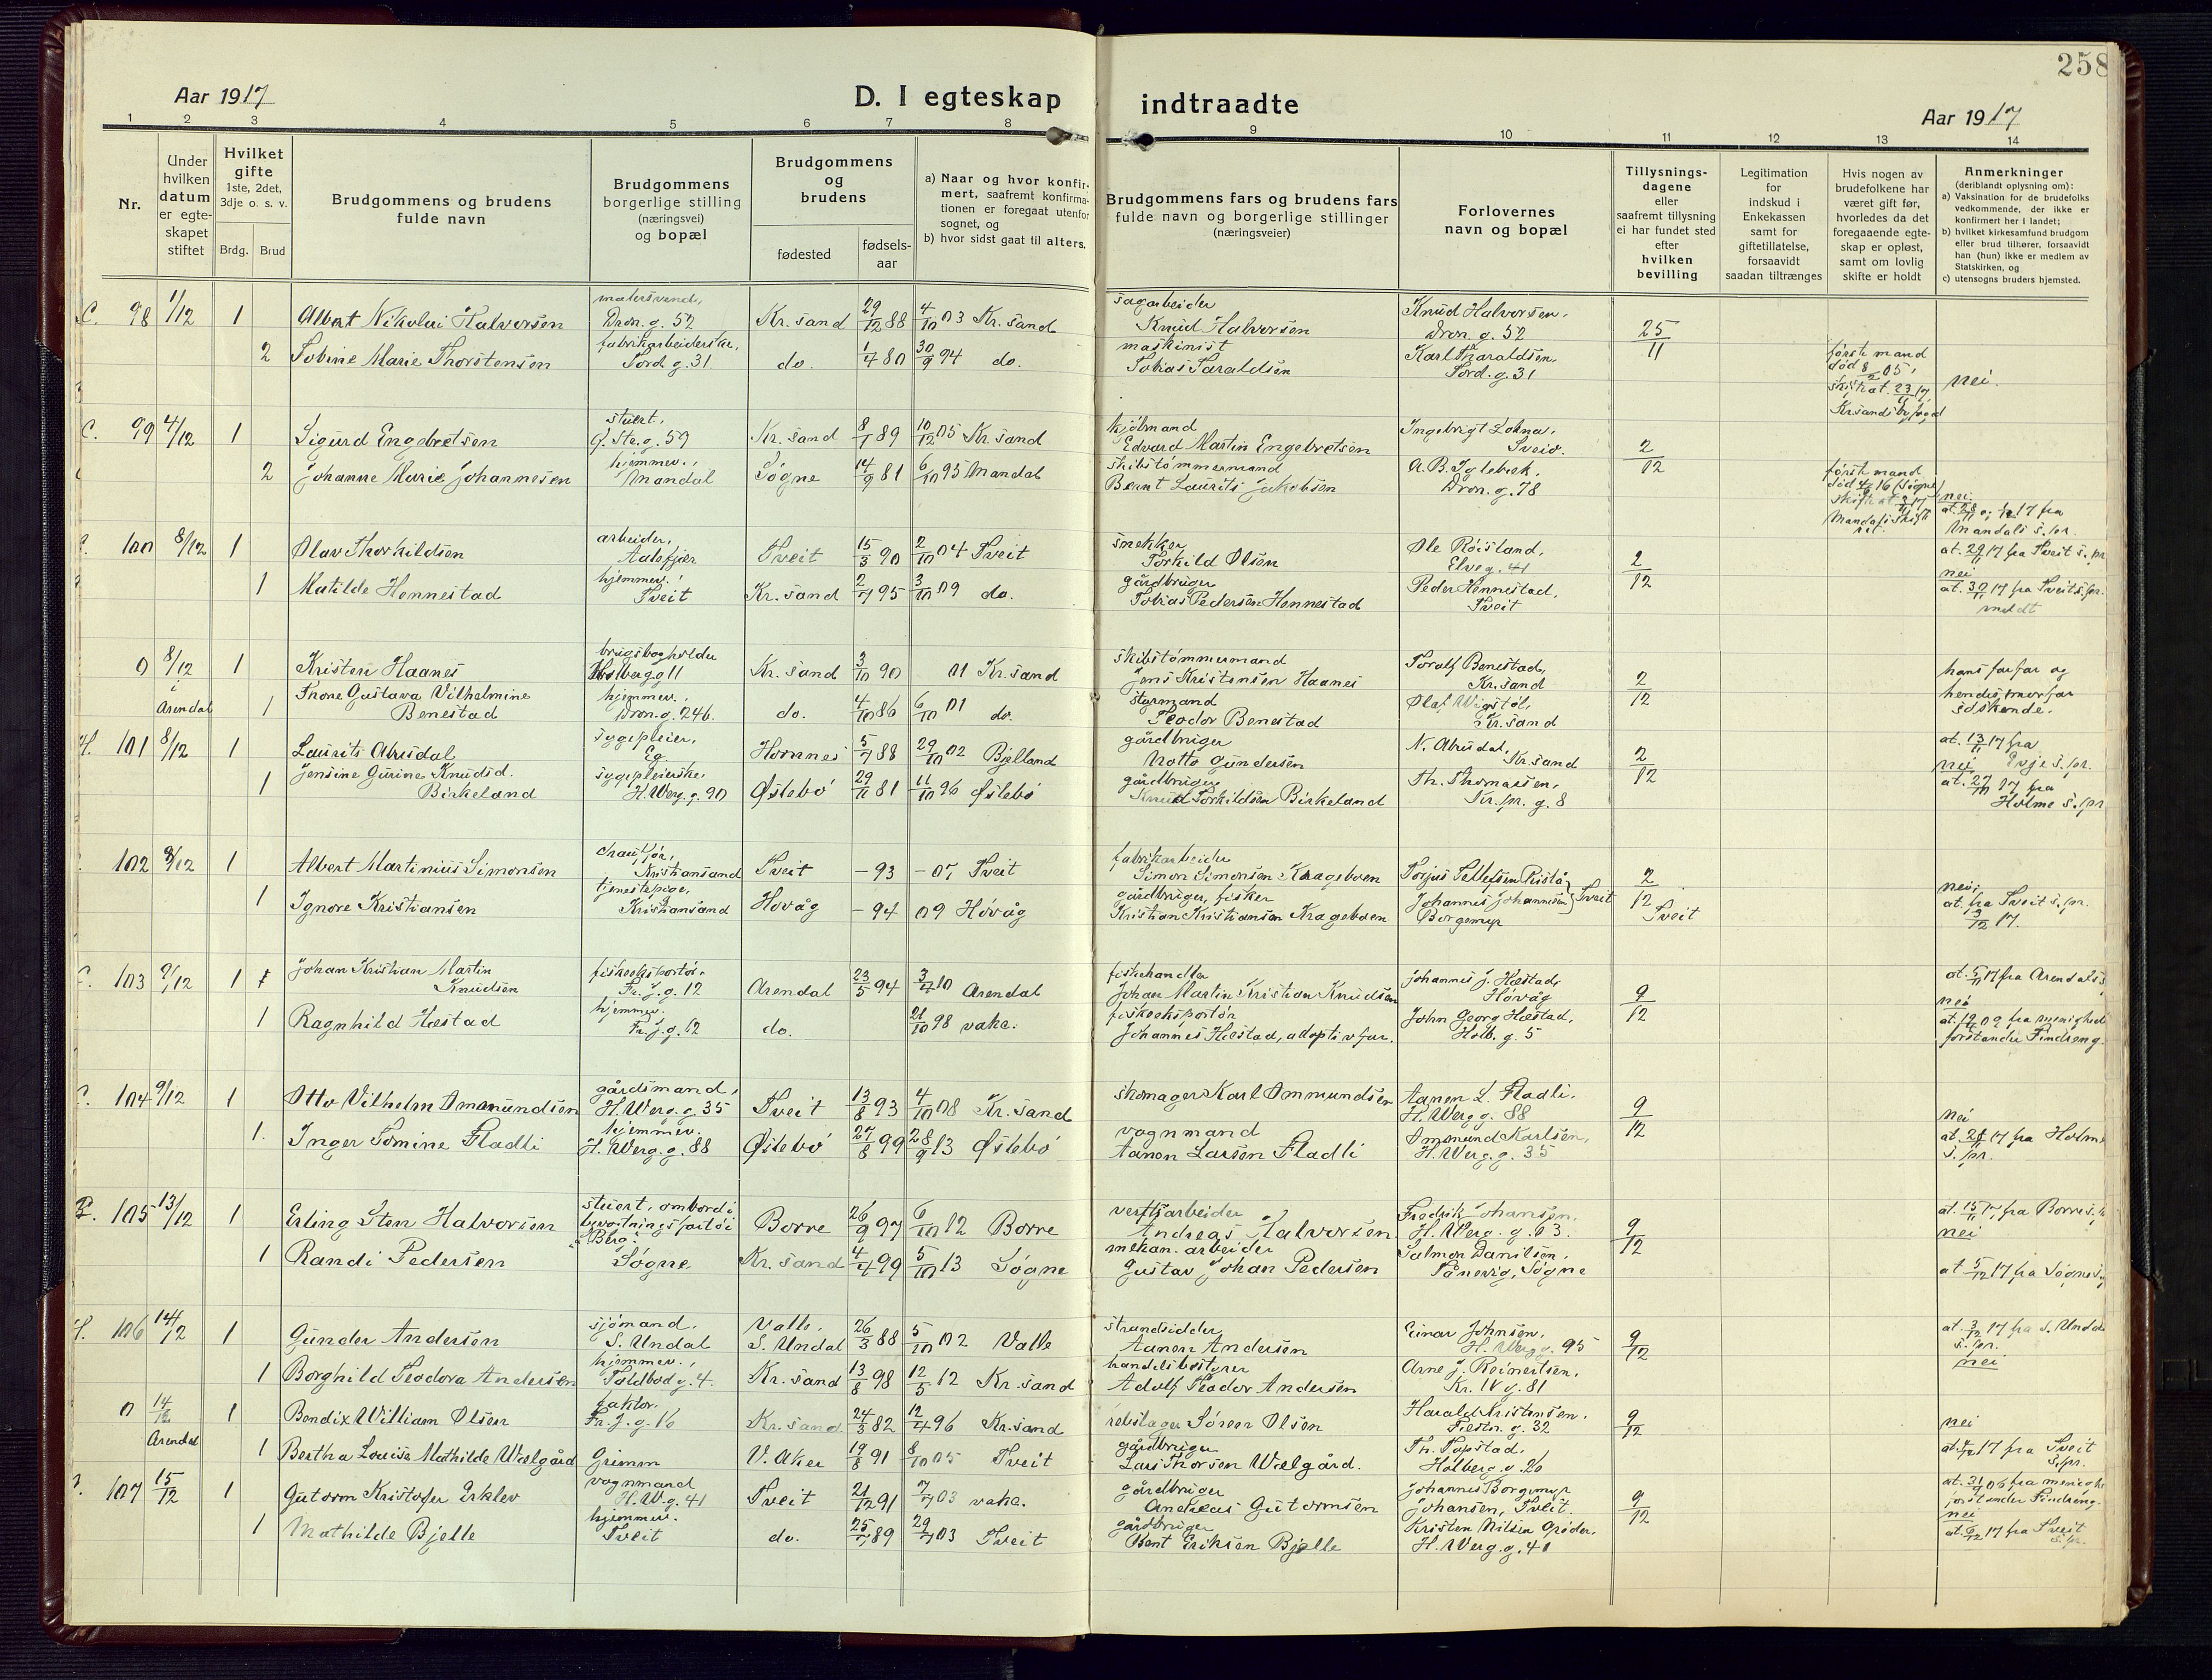 258
Aar 1917
D. I egteskap indtraadte
Aar 1917
1 2 3 4 5 6 7 8 9 10 11 12 13 14
Nr.
Under hvilken datum er egte-skapet stiftet
Hvilket gifte 1ste, 2det, 3dje o. s. v.
Brdg. Brud
Brudgommens og brudens fulde navn
Brudgommens borgerlige stilling (næringsvei) og bopæl
Brudgommens og brudens
fødested
fødsels-aar
a) Naar og hvor konfir-mert, saafremt konfirma-tionen er foregaat utenfor sognet, og
b) hvor sidst gaat til alters.
Brudgommens fars og brudens fars fulde navn og borgerlige stillinger (næringsveier)
Forlovernes navn og bopæl
Tillysnings-dagene eller saafremt tillysning ei har fundet sted efter hvilken bevilling
Legitimation for indskud i Enkekassen samt for giftetillatelse, forsaavidt saadan tiltrænges
Hvis nogen av brudefolkene har været gift før, hvorledes da det foregaaende egte-skap er opløst, samt om lovlig skifte er holdt
Anmerkninger (deriblandt oplysning om):
a) Vaksination for de brudefolks vedkommende, der ikke er konfirmert her i landet;
b) hvilket kirkesamfund brudgom eller brud tilhører, forsaavidt han (hun) ikke er medlem av Statskirken, og
c) utensogns bruders hjemsted.
C. 98 1/12 1 Albert Nikolai Halvorsen malersvend, Dron.g. 52 Kr.sand 29/12 88 4/10 03 Kr.sand sagarbeider Knud Halvorsen Knud Halvorsen, Dron.g. 52 25/11
2 Tobine Marie Thorstensen fabrikarbeiderske, Tord.g. 31 do. 1/4 80 30/9 94 do. maskinist Tobias Taraldsen Karl Taraldsen, Tord.g. 31 første mand død 8/2 05, nei.
C. 99 4/12 1 Sigurd Engebretsen stuert, Ø. Str.g. 59 Kr.sand 8/1 89 10/12 05 Kr.sand kjølmand Edvard Martin Engebretsen Ingebrigt Lohna, Sveio. 2/12
2 Johanne Marie Johannesen hjemmev., Mandal Søgne 14/9 81 6/10 95 Mandal skibstømmermand Bernt Laurits Jakobsen A.B. Iglebæk, Dron.g. 78 første mand nei Mandals s.pr.
100 8/12 1 Olav Thorkildsen arbeider, Aalefjær Tveit 15/3 90 2/10 04 Tveit snekker Torkild Olsen Ole Røisland, Elveg. 41 2/12 at. 29/11 17 fra Tveit s.pr.
1 Matilde Hennestad hjemmev., Tveit Kr.sand 2/7 95 3/10 09 do. gårdbruger Tobias Pedersen Hennestad Peder Hennestad, Tveit nei at. 30/11 17 fra Tveit s.pr.
0 8/12 i Arendal 1 Kristen Haanes brugsbogholder Holberg.g 11 Kr.sand 3/10 90 01 Kr.sand skibstømmermand Jens Kristensen Haanes Toralf Benestad, Kr.sand 2/12 hans farfar og
1 Thone Gustava Vilhelmine Benestad hjemmev., Dron.g. 24b. do. 4/10 86 6/10 01 do. styrmand Teodor Benestad Olaf Vigstøl, Kr.sand hendes morfar søskende.
H. 101 8/12 1 Laurits Abusdal sygepleier, Eg. Hornnes 5/7 88 29/10 02 Bjelland gårdbruger Notto Gundersen N. Abusdal, Kr.sand 2/12 at. 13/11 17 fra Evje s.pr.
1 Jensine Gurine Knudsd. Birkeland sygepleierske, H.Werg.g. 90 Øslebø 29/11 81 11/10 96 Øslebø gårdbruger Knud Torkildsen Birkeland Th. Thomassen, Kr.pr.g. 8 nei at. 27/11 17 fra Holme s.pr.
102 8/12 1 Albert Martinius Simonsen chauffør, Kristiansand Tveit - 93 - 07 Tveit fabrikarbeider Simon Simonsen Krageboen Torjus Tellefsen Ristå 2/12
1 Ignore Kristiansen tjenestepige, Kristiansand Høvåg - 94 09 Høvåg gårdbruger, fisker Kristian Kristiansen Krageboen Johannes Johannesen Borgemyr } Tveit Tveit nei, at. fra Tveit s.pr. 3/12 17.
103 9/12 1 Johan Kristian Martin Knudsen fiskeeksportør, Fr.J.g. 12 Arendal 23/5 94 3/7 10 Arendal fiskehandler Johan Martin Kristian Knudsen Johannes J. Hæstad, Høvåg 9/12 at. 5/11 17 fra Arendal s.
1 Ragnhild Hæstad hjemmev. Fr.J.g. 12 do. 21/10 98 vaks. fiskeeksportør Johannes Hæstad, adoptivfar. John Georg Hæstad, Holb.g. 5 nei forstander Findreng.
104 9/12 1 Otto Vilhelm Ommundsen gårdsmand, H.Werg.g. 35 Tveit 13/8 93 4/10 08 Kr.sand skomager Karl Ommundsen Aanen L. Fladli, H.Werg.g. 88 9/12 nei
1. Inger Tomine Fladli hjemmev. H.Werg.g. 88 Øslebø 27/8 99 28/9 13 Øslebø vognmand Aanon Larsen Fladli Ommund Karlsen, H.Werg.g. 35 fra Holme s.pr.
105 13/12 1 Erling Sten Halvorsen stuert, ombord i bevogtningsfartøi "Berg." Borre 26/9 97 6/10 12 Borre verftsarbeider Andreas Halvorsen Fredrik Johansen, H.Werg.g. 63. 9/12 at 15/11 17 fra Borre s.pr. nei
1 Randi Pedersen Søgne Kr.sand 4/4 99 5/10 13 Søgne mekan. arbeider Gustav Johan Pedersen Salmon Danilsen, Tånevig, Søgne at 5/12 17 fra Søgne s.p.
H. 106 14/12 1 Gunder Andersen sjømand, S. Undal Valle, S. Undal 26/3 88 5/10 02 Valle strandsidder Aanen Andersen Einar Johnsen, H.Werg.g. 95 9/12 at 3/12 17 fra S. Undal s.pr.
1 Borghild Teodora Andersen hjemmev., Toldbodg. 4. Kr.sand 13/8 98 12/5 12 Kr.sand handelsbestyrer Adolf Teodor Andersen Arne J. Reinertsen, Kr. IV g. 81 nei
0 14/12 Arendal 1 Bendix William Olsen faktor, Fr.J.g. 16 Kr.sand 24/3 82 12/4 96 Kr.sand rebslager Søren Olsen Harald Kristensen, Festn.g. 32 9/12 nei
1 Bertha Louise Mathilde Wælgård Grimm V. Aker 19/8 91 8/10 05 Tveit gårdbruger Lars Thorsen Wælgård. Th. Topstad, Holberg.g. 26 17 fra Tveit s.pr.
107 15/12 1 Gutorm Kristofer Erklev vognmand H.W.g. 41 Tveit 21/12 91 7/7 03 vaks. gårdbruger Andreas Gutormsen Johannes Borgemyr Johansen, Tveit. 9/12 forstander Findreng.
1 Mathilde Bjelle hjemmev. Tveit do. 25/7 89 29/7 03 Tveit gårdbruger Bent Eriksen Bjelle Kristen Nilsen Grøder, H.Werg.g. 41 nei at. 6/12 17 fra Tveit s.pr.